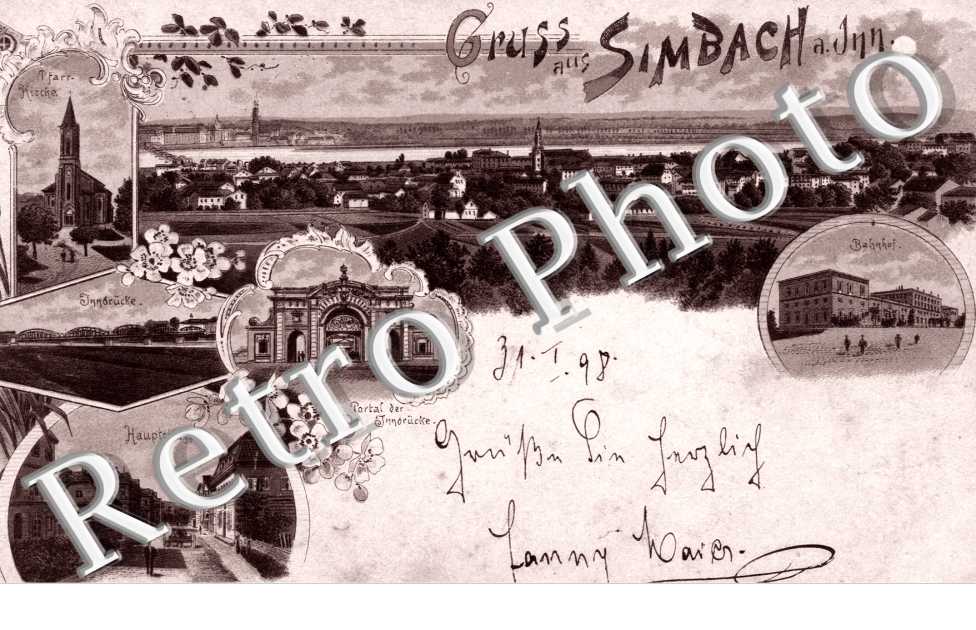 Gruss
aus
SIMBACH a. Inn.
Pfarr-
Kirche.
Bahnhof.
Innbrücke.
Portal der
Innbrücke.
31. I. 98.
Grüße Sie herzlich
Fanny Maier.
Retro Photo